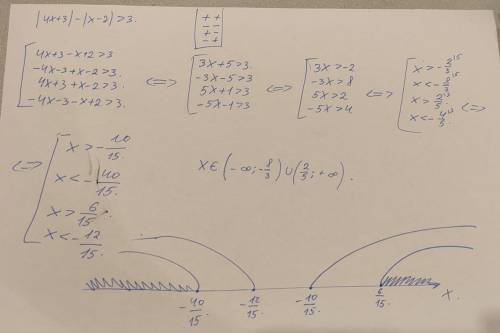 |4x+3|-|x-2|>3.
+ +
+ -
- -
- +
4x+3-x+2>3
-4x-3+x-2>3.
4x+3+x-2>3.
-4x-3-x+2>3.
<=>
3x+5>3.
-3x-5>3
5x+1>3
-5x-1>3
<=>
3x>-2
-3x>8
5x>2
-5x>4
<=>
x>-2/3
x<-8/3
x>2/5
x<-4/5
<=>
<=>
x>-10/15.
x<-40/15
x>6/15.
x<-12/15.
x∈(-∞;-8/3)∪(2/5;+∞).
-40/15 -12/15. -10/15 6/15. x.